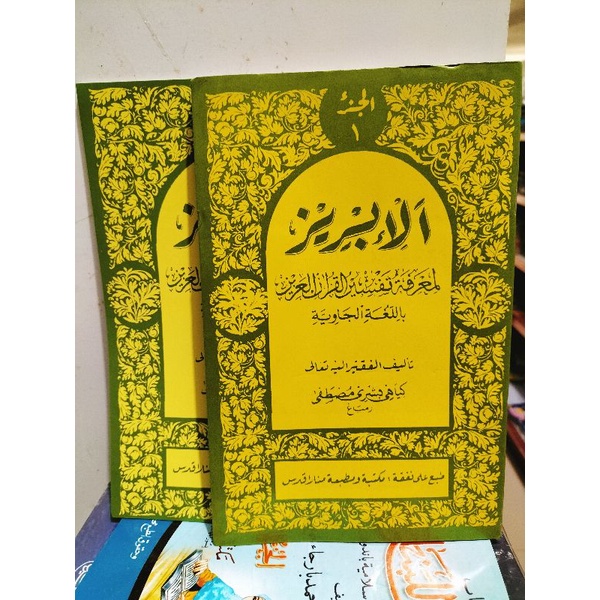 الجزء
١
الإبريز
لمعرفة تفسير القرآن العزيز
باللغة الجاوية
تأليف الفقير إليه تعالى
كياهى بشرى مصطفى
رمباع
طبع على نفقة : مكتبة ومطبعة منارا قدس